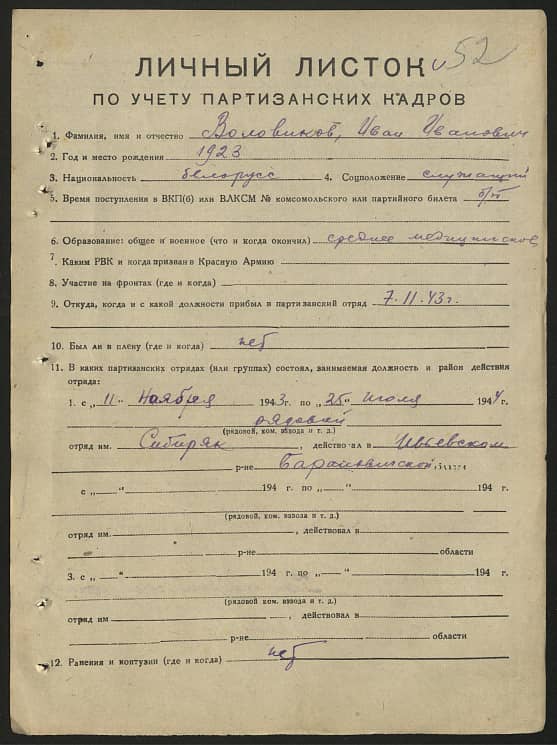 52
ЛИЧНЫЙ ЛИСТОК
ПО УЧЕТУ ПАРТИЗАНСКИХ КАДРОВ
1. Фамилия, имя и отчество Воловиков, Иван Иванович
2. Год и место рождения 1923
3. Национальность белорусс 4. Соцположение служащий
5. Время поступления в ВКП(б) или ВЛКСМ № комсомольского или партийного билета б/п
6. Образование: общее и военное (что и когда окончил) среднее медицинское
7. Каким РВК и когда призван в Красную Армию
8. Участие на фронтах (где и когда)
9. Откуда, когда и с какой должности прибыл в партизанский отряд 7.11.43г.
10. Был ли в плену (где и когда) нет
11. В каких партизанских отрядах (или группах) состоял, занимаемая должность и район действия
отряда:
1. с „11" Ноября 1943г. по „25" июля 1944г.
рядовой
(рядовой, ком. взвода и т. д.)
отряд им. Сибиряк, действовал в Ивьевском
р-не Барановичской области
с „—" 194 г. по „—" 194 г.
(рядовой ком. взвода и т. д.)
отряд им. , действовал в
р-не области
3. с „—" 194 г. по „—" 194 г.
(рядовой ком. взвода и т. д.)
отряд им , действовал в
р-не области
12. Ранения и контузии (где и когда) нет